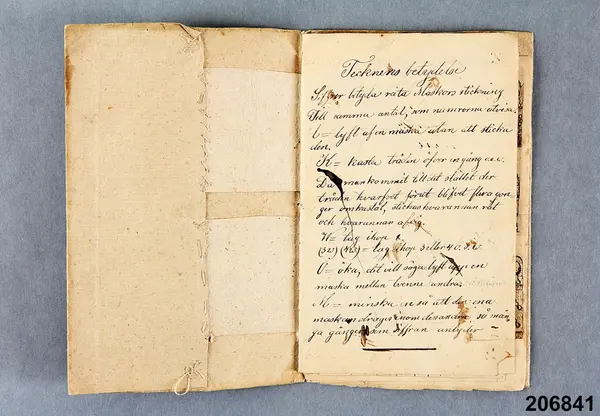 Tecknens betydelse
Siffror betyda räta Maskors stickning
Till samma antal, som numrorna utvisa.
l = lyft af en maska utan att sticka
den.
K = kasta tråden öfver en gång
Då man kommit till det stället der
tråden hvarfvet förut blifvit flera gån-
ger omkastat, stickas hvarannan rät
och hvarannan afvig.
H = tag ihop
= tag ihop 3 eller 4
O = öka, det vill säga lyft upp en
maska mellan tvenne andra
M = minska en så att den ena
maskan drages inom den andra så mån-
ga gånger som siffran antyder
206841